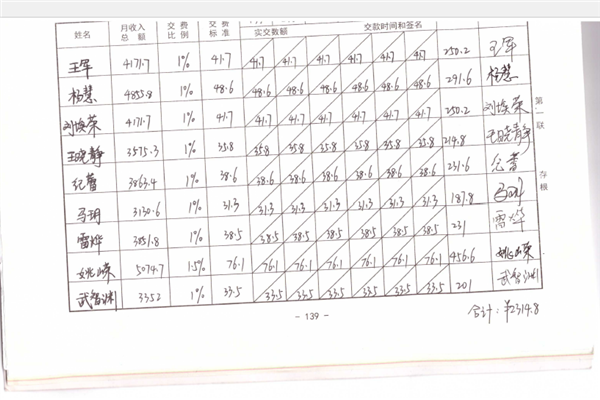 姓名 月收入总额 交费比例 交费标准 实交数额 交款时间和签名
王军 4171.7 1% 41.7 41.7 41.7 41.7 41.7 41.7 41.7 250.2 王军
杨慧 4855.8 1% 48.6 48.6 48.6 48.6 48.6 48.6 48.6 291.6 杨慧
刘焕荣 4171.7 1% 41.7 41.7 41.7 41.7 41.7 41.7 41.7 250.2 刘焕荣
王晓静 3575.3 1% 35.8 35.8 35.8 35.8 35.8 35.8 35.8 214.8 王晓静
纪蕾 3863.4 1% 38.6 38.6 38.6 38.6 38.6 38.6 38.6 231.6
马玥 3130.6 1% 31.3 31.3 31.3 31.3 31.3 31.3 31.3 187.8
雷烨 3851.8 1% 38.5 38.5 38.5 38.5 38.5 38.5 38.5 231 雷烨
5074.7 1.5% 76.1 76.1 76.1 76.1 76.1 76.1 76.1 456.6
武智渊 3352 1% 33.5 33.5 33.5 33.5 33.5 33.5 33.5 201 武智渊
第一联 存根
- 139 -
合计:¥2314.8